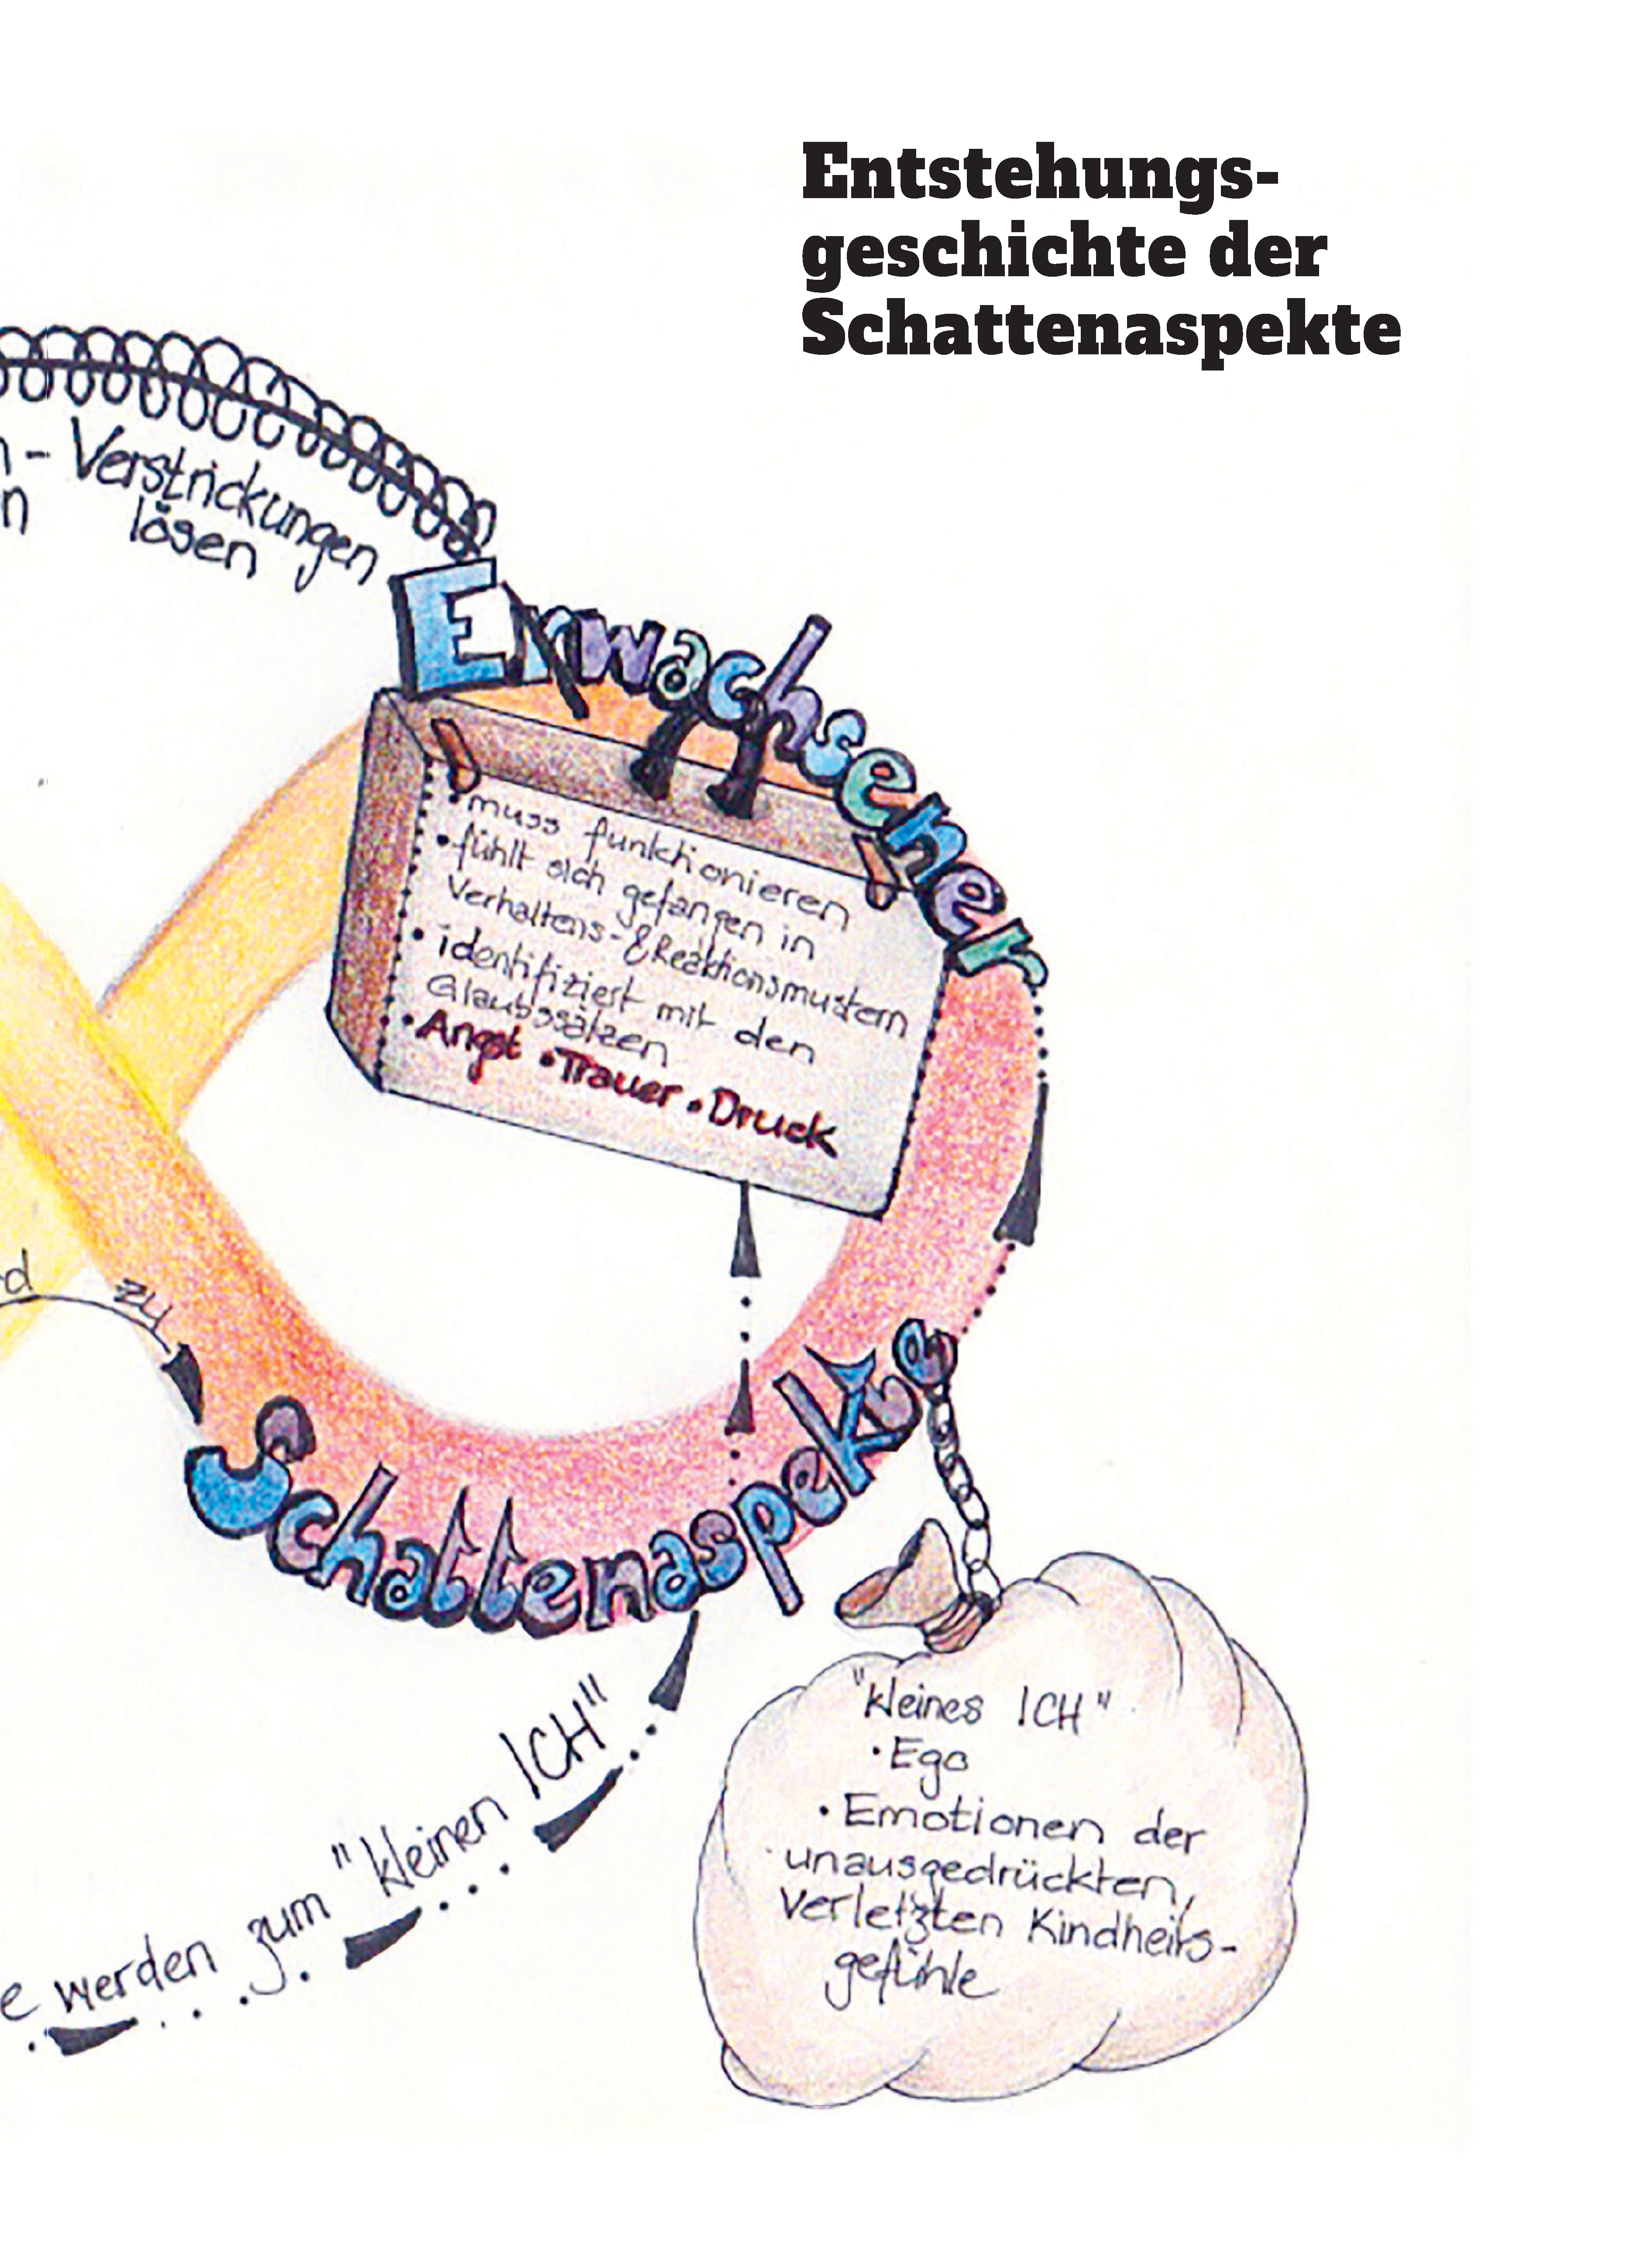 Entstehungs-
geschichte der
Schattenaspekte
n - Verstrickungen
n lösen
Erwachsener
• muss funktionieren
• fühlt sich gefangen in
Verhaltens- & Reaktionsmustern
• identifiziert mit den
Glaubssätzen
• Angst • Trauer • Druck
d zu
Schattenaspekte
e werden zum "kleinen ICH"
"kleines ICH"
• Ego
• Emotionen der
unausgedrückten,
verletzten Kindheits-
gefühle